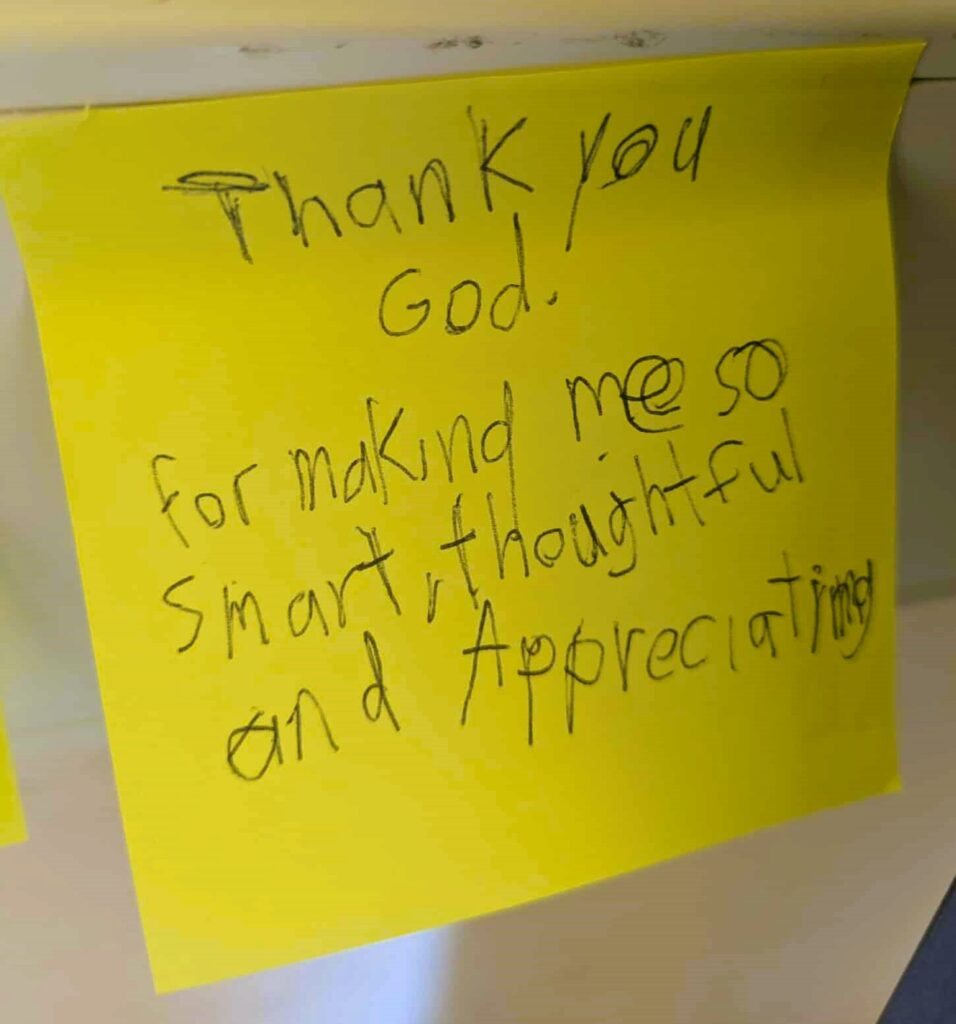 Thank you
God.
for making me so
smart, thoughtful
and Appreciating